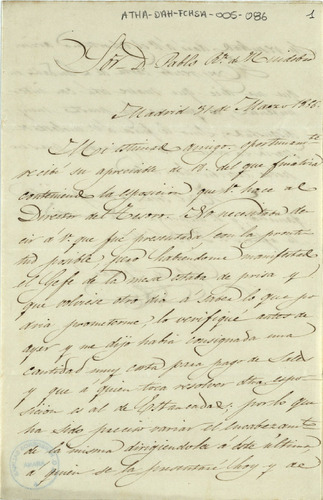 ATHA-DAH-FCHSA-005-086
1
Sor. D. Pablo de
Madrid 31 de Marzo
Mi estimado amigo: oportunamte
recibí su apreciable de V. del que finaliza
conteniendo la esposicion que V. hace al
Director del Tesoro. No necesito de
cir á V. que fué presentada con la pronti
tud posible; pero habiendome manifestado
el Gefe de la mesa estaba de prisa y
que volviese otro dia á saber lo que po
dria prometerme, lo verifiqué antes de
ayer y me dijo habia consignada una
cantidad muy corta para pago de Sales
y que á quien toca resolver dha espo
sicion es al de Estancadas; por lo que
ha sido preciso variar el encabezamto
de la misma dirigiendola á este último
á quien se la presentaré hoy y de